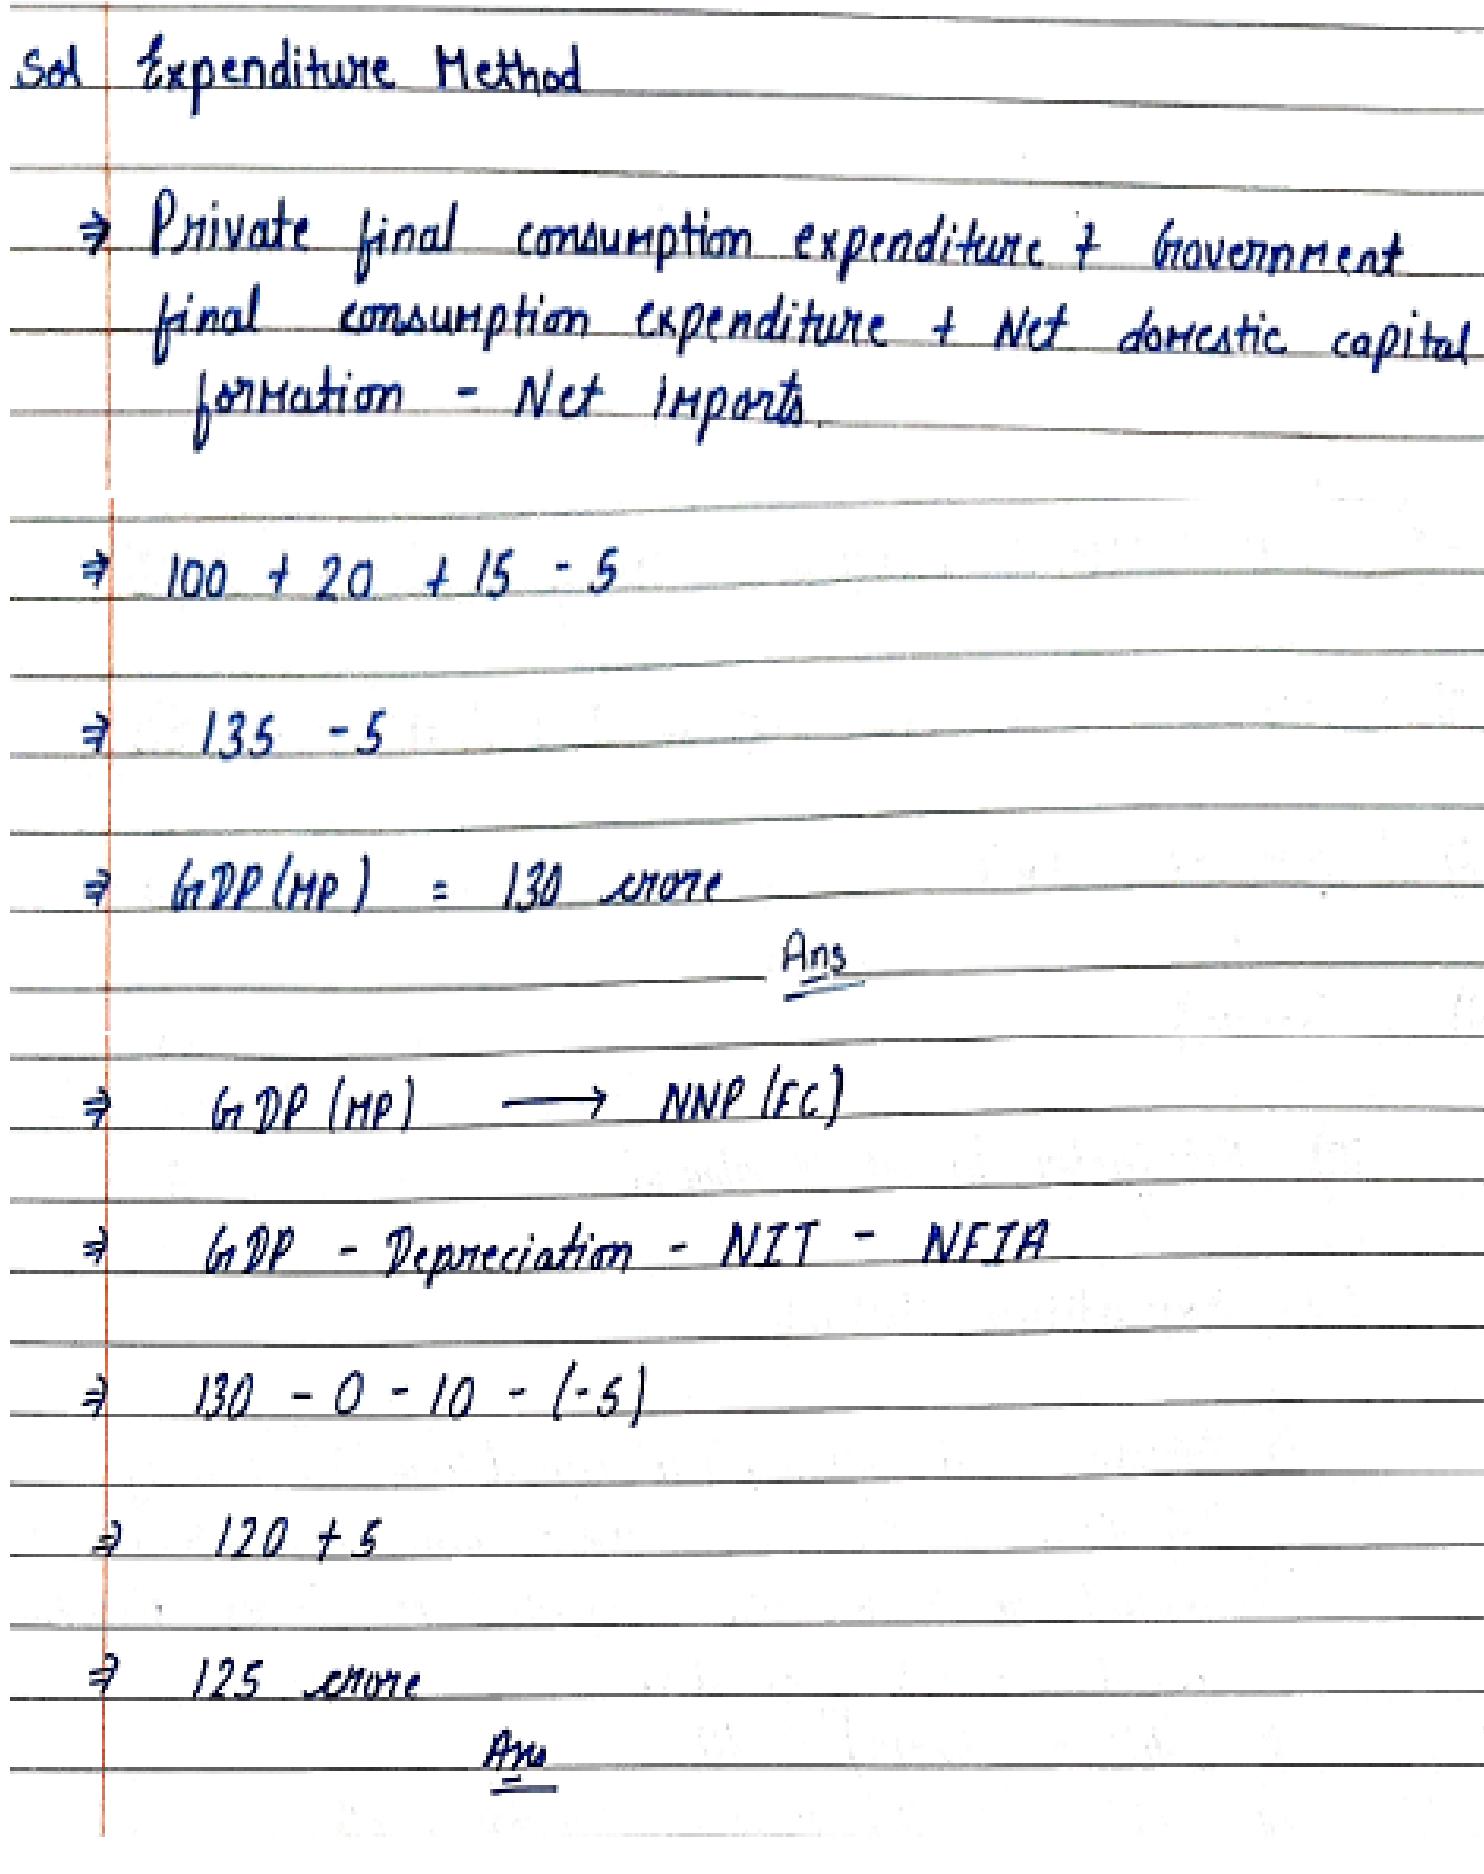 Sol Expenditure Method
⇒ Private final consumption expenditure + Government
final consumption expenditure + Net domestic capital
formation - Net imports
⇒ 100 + 20 + 15 - 5
⇒ 135 - 5
⇒ GDP (MP) = 130 crore
Ans
⇒ GDP (MP) ⟶ NNP (FC)
⇒ GDP - Depreciation - NIT - NFIA
⇒ 130 - 0 - 10 - (-5)
⇒ 120 + 5
⇒ 125 crore
Ans